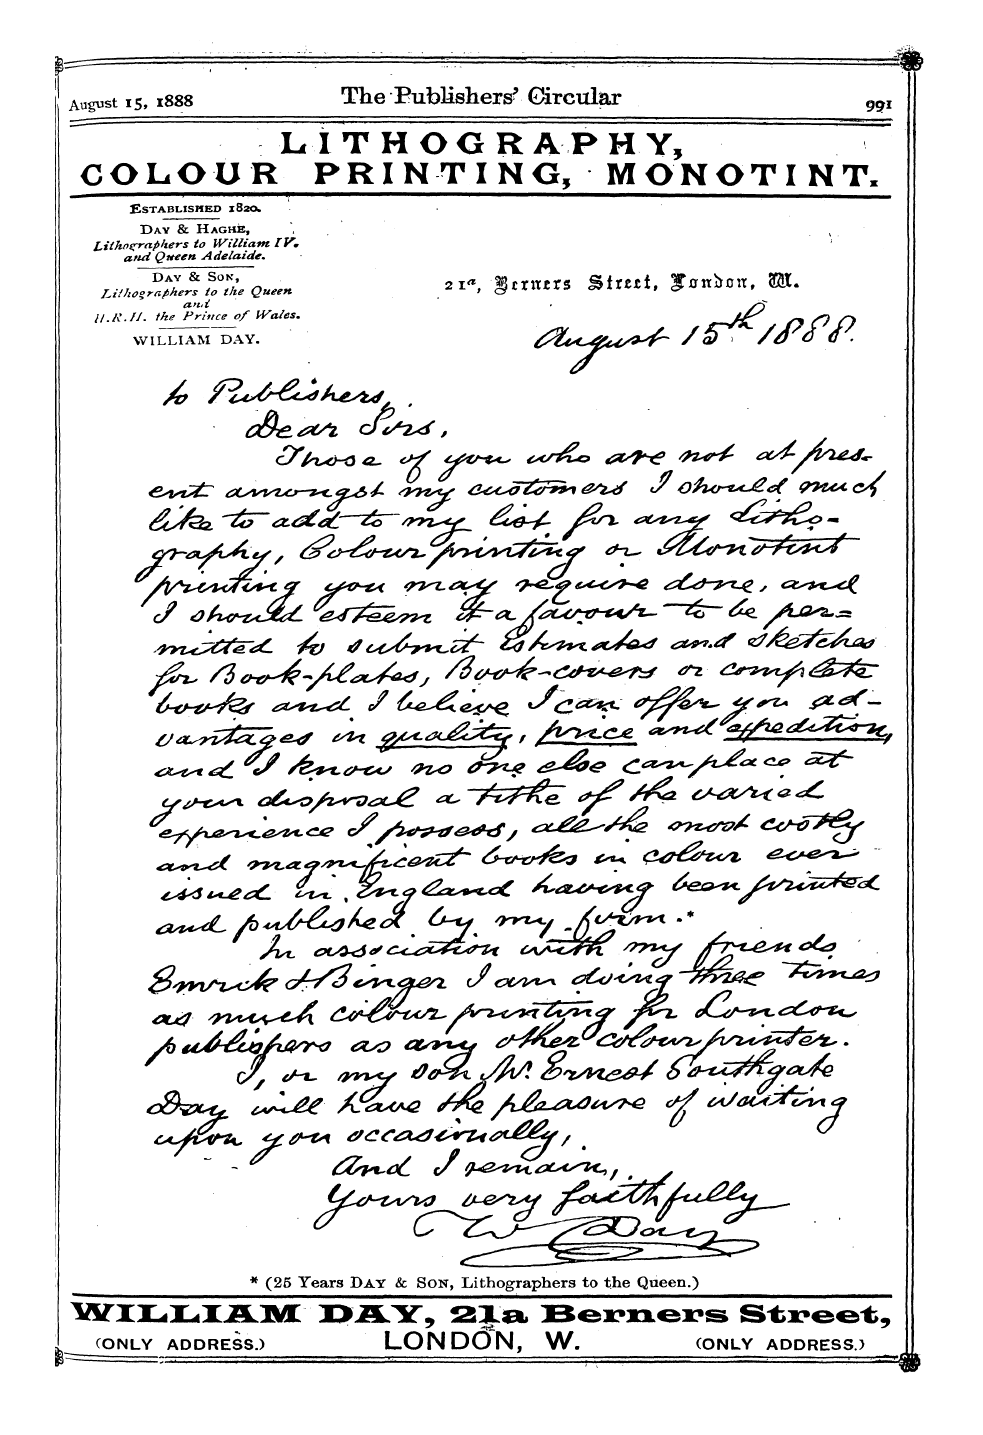 August 15, 1888 The Publishers' Circular 991
LITHOGRAPHY,
COLOUR PRINTING, MONOTINT.
ESTABLISHED 1820.
DAY & HAGHE,
Lithographers to William IV.
and Queen Adelaide.
DAY & SON,
Lithographers to the Queen
and
H.R.H. the Prince of Wales.
WILLIAM DAY.
21a, Berners Street, London, W.
August 15th 1888.
to Publishers,
Dear Sirs,
Those of you who are not at pres-
ent amongst my customers I should much
like to add to my list for any Litho-
graphy, Colour printing or Monotint
printing you may require done, and
I should esteem it a favour to be per-
mitted to submit Estimates and sketches
for Book-plates, Book-covers or complete
books and I believe I can offer you ad-
vantages in quality, price and expedition,
and I know no one else can place at
your disposal a tithe of the varied
experience I possess, all the most costly
and magnificent books in colour ever
issued in England having been printed
and published by my firm.*
In association with my friends
Emrick & Binger I am doing three times
as much colour printing for London
publishers as any other colour printer.
I, or my son Mr. Ernest Southgate
Day will have the pleasure of waiting
upon you occasionally,
And I remain,
Yours very faithfully
W Day
* (25 Years DAY & SON, Lithographers to the Queen.)
WILLIAM DAY, 21a Berners Street,
(ONLY ADDRESS.) LONDON, W. (ONLY ADDRESS.)